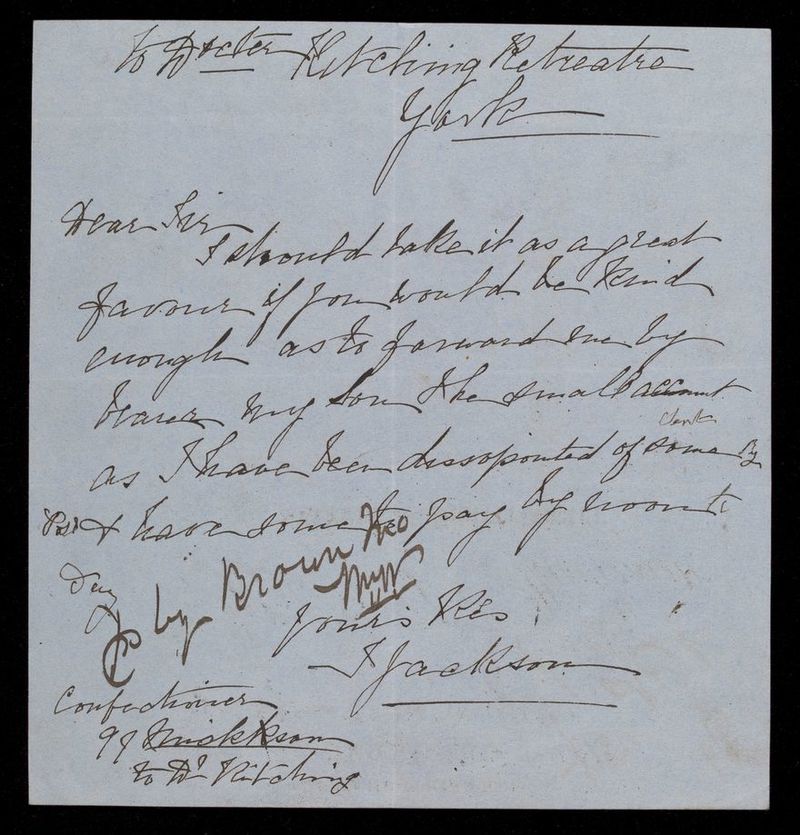 To Docter Kitching Retreatre
York
Dear Sir
I should take it as a great
favour if you would be kind
enough as to forward me by
bearer my son the small account
as I have been dissopointed of some By
Post & have some to pay by noon to
Day
by Brown
Yours Res
J Jackson
Confectioner
97
to Dr Kitching